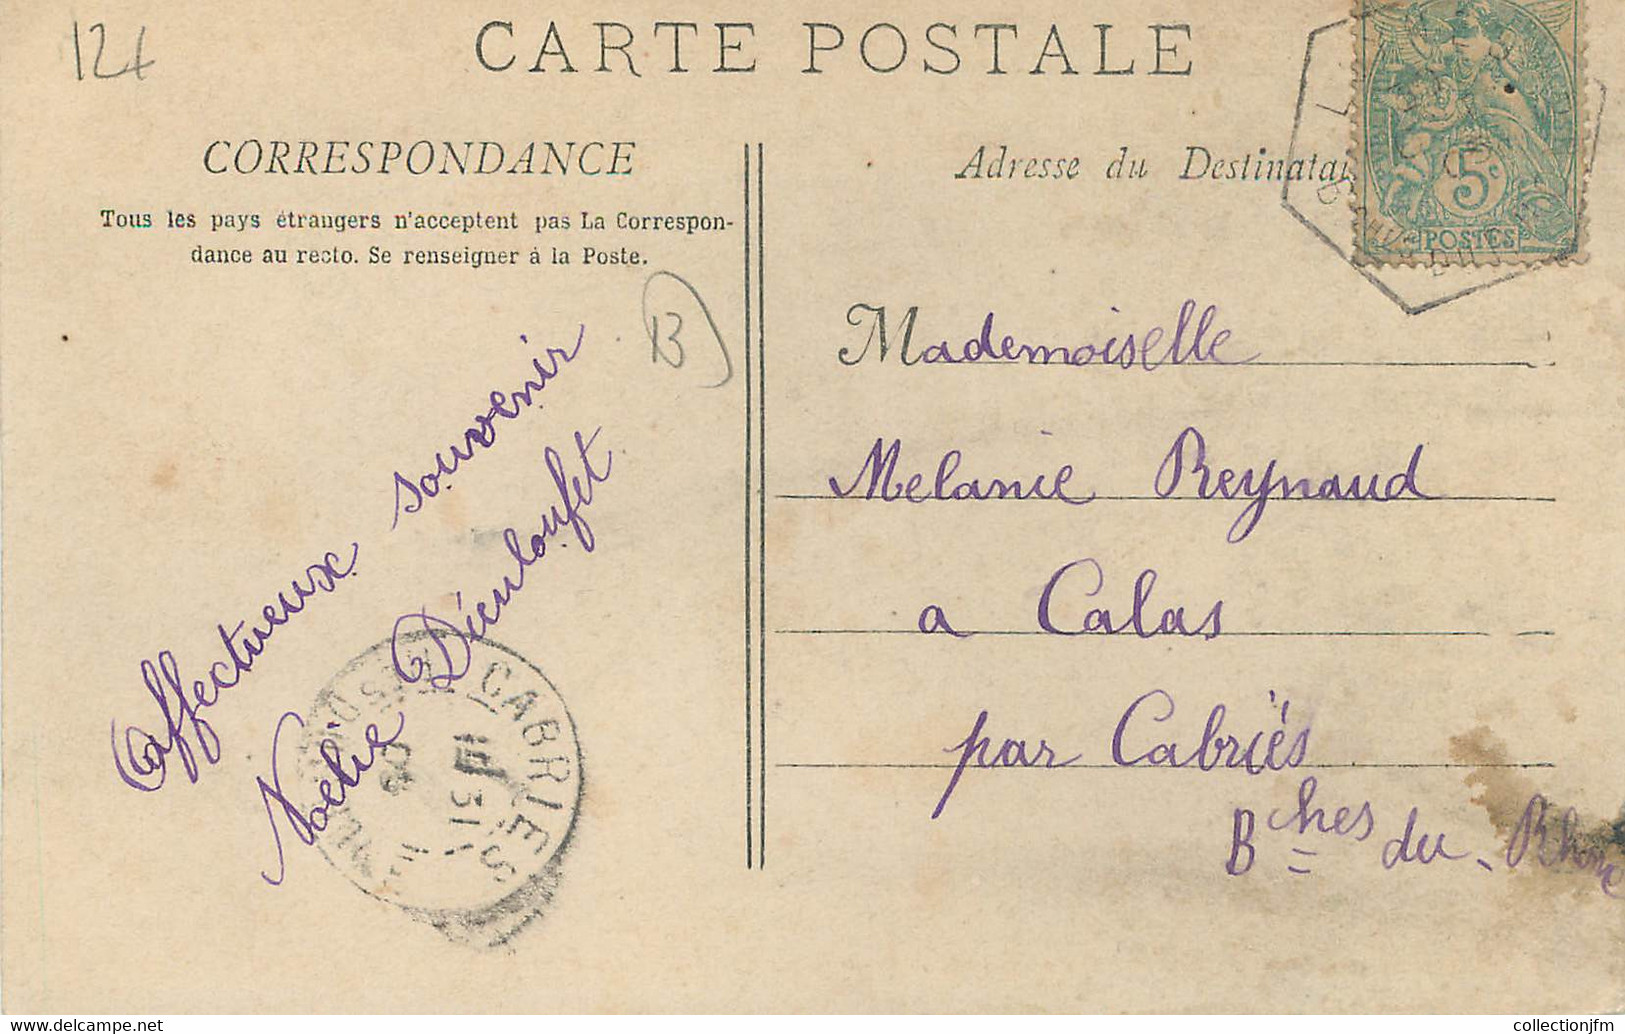 12€
CARTE POSTALE
CORRESPONDANCE
Tous les pays étrangers n'acceptent pas La Correspon-
dance au recto. Se renseigner à la Poste.
B
Affectueux souvenir
Noélie Dieuloufet
CABRIES
Adresse du Destinatai
5c
POSTES
Mademoiselle
Melanie Reynaud
a Calas
par Cabriés
Bches du Rhone
www.delcampe.net
collectionjfm